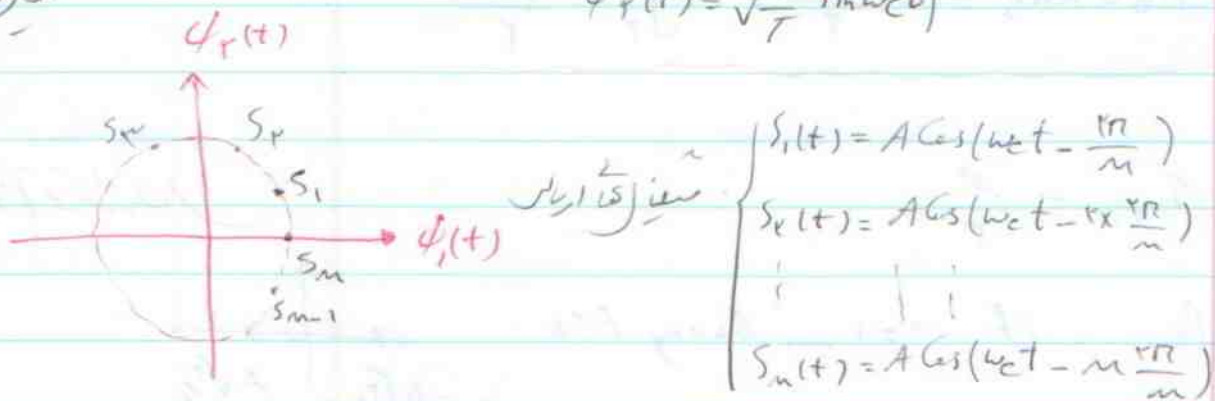 ψ۲(t) = √ T sin ωct
ψ۲(t)
S۳ S۲
S۱
ψ۱(t)
SM
SM-1
سیگنال های ارسالی
S۱(t) = A Cos(ωct - ۲π/M)
S۲(t) = A Cos(ωct - ۲x ۲π/M)
SM(t) = A Cos(ωct - M ۲π/M)